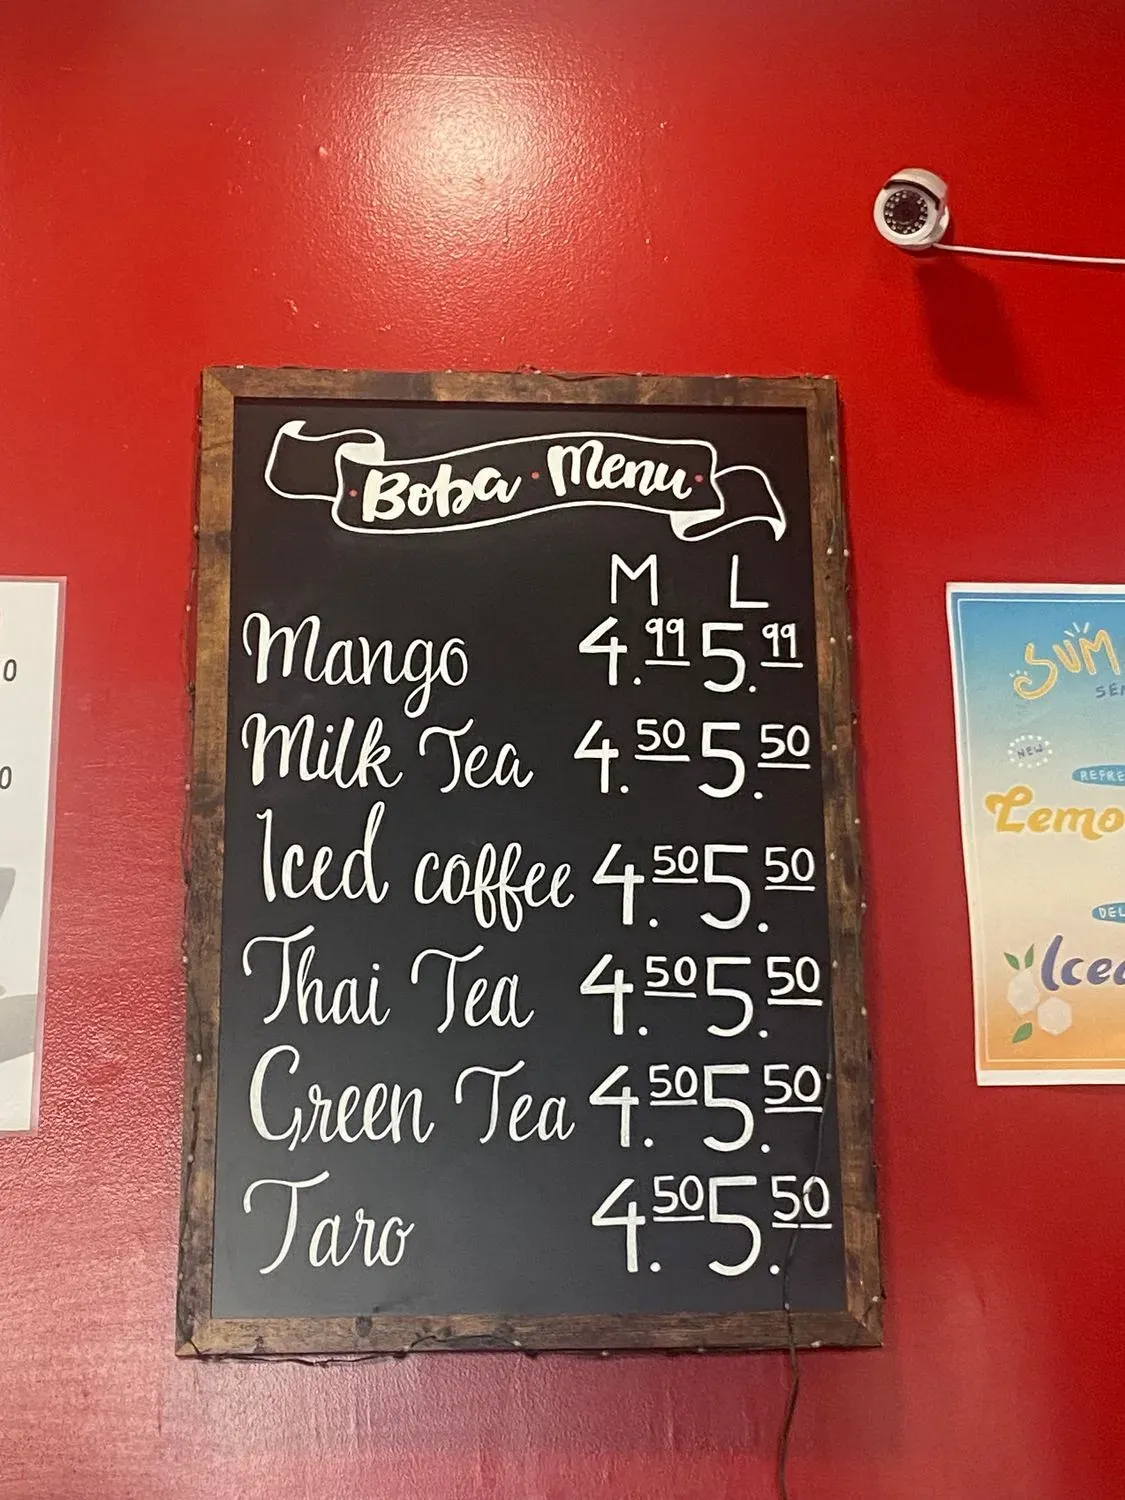 Boba · Menu
M L
Mango 4.99 5.99
Milk Tea 4.50 5.50
Iced coffee 4.50 5.50
Thai Tea 4.50 5.50
Green Tea 4.50 5.50
Taro 4.50 5.50
NEW